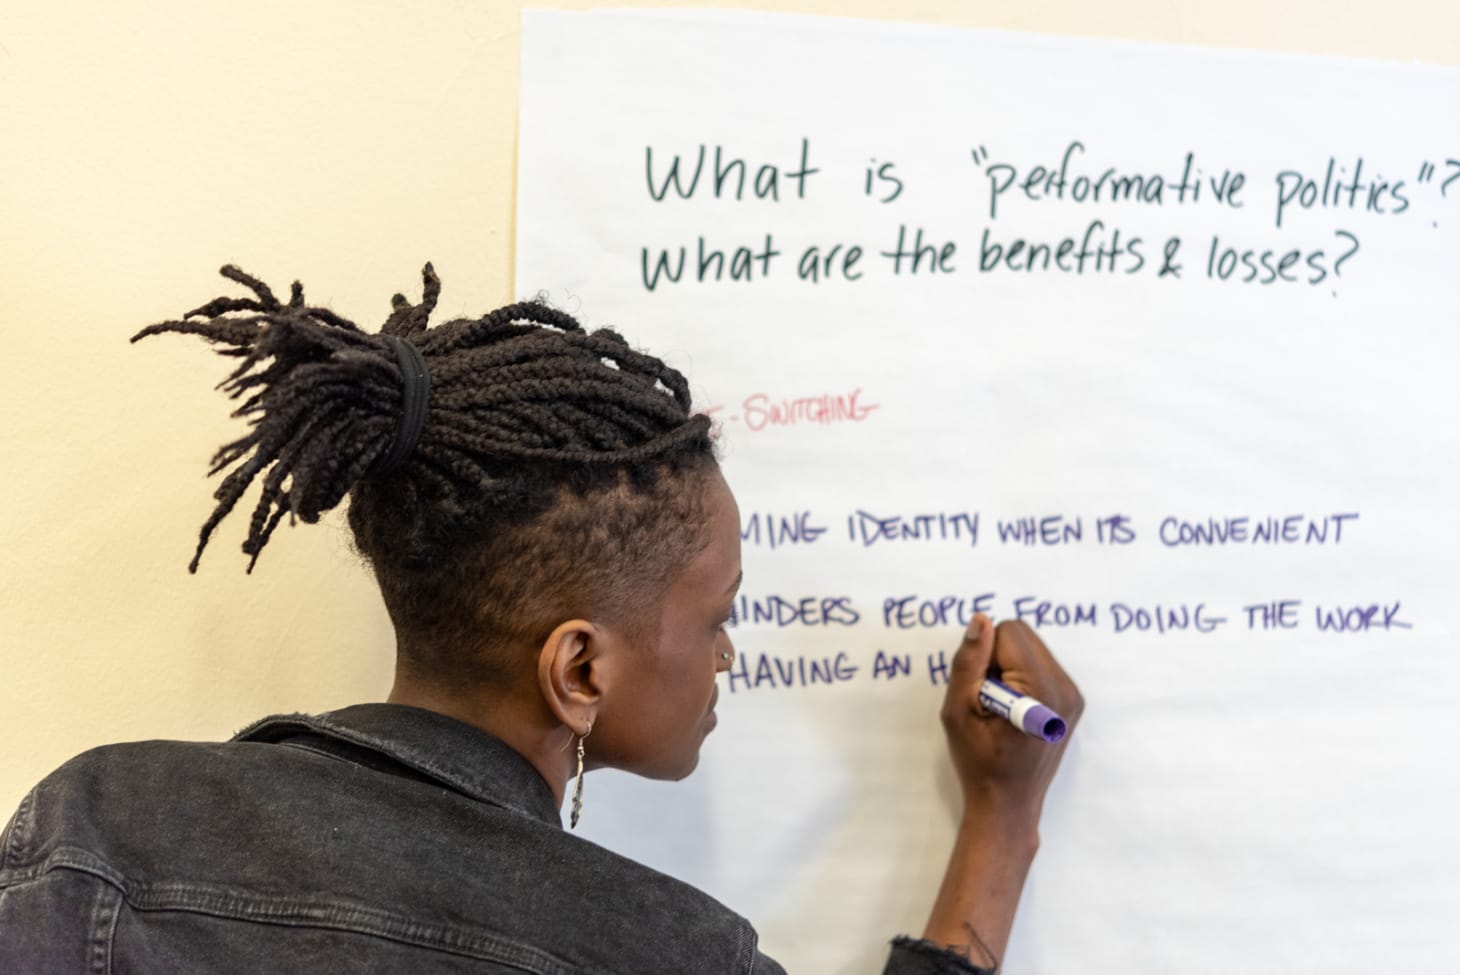 What is "performative politics"?
What are the benefits & losses?
-SWITCHING
IDENTITY WHEN ITS CONVENIENT
HINDERS PEOPLE FROM DOING THE WORK
HAVING AN H